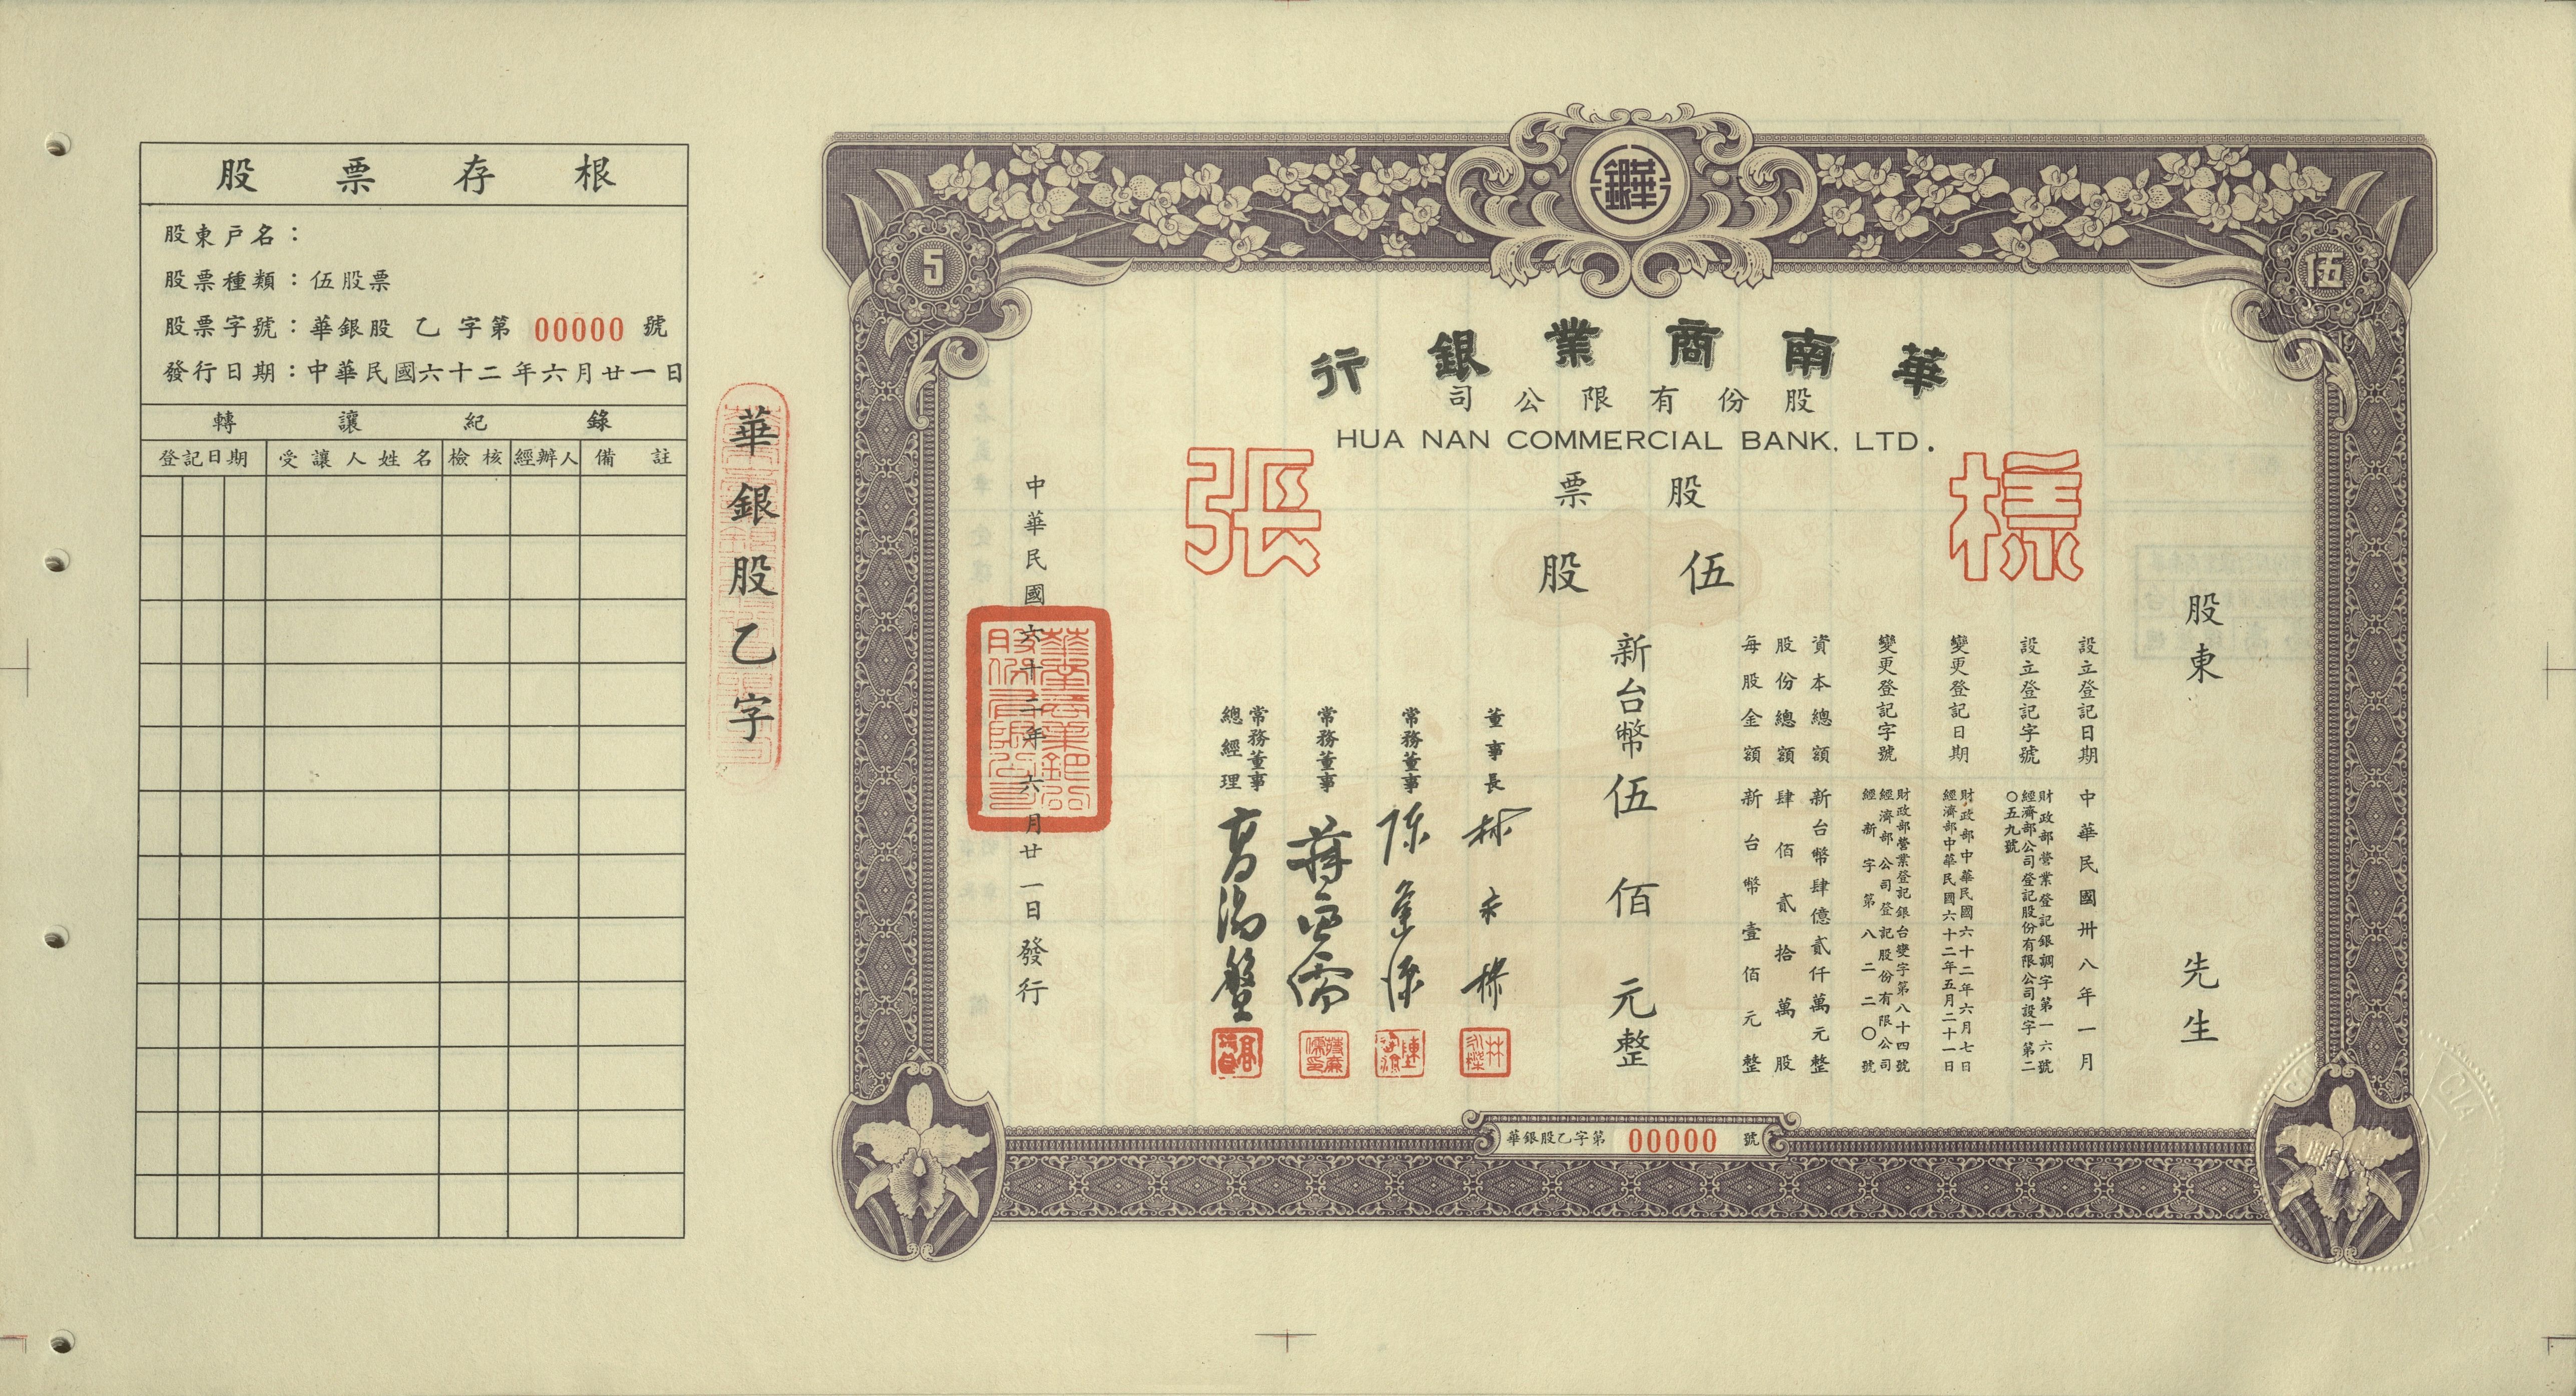 股票存根
股東戶名：
股票種類：伍股票
股票字號：華銀股 乙 字第 00000 號
發行日期：中華民國六十二年六月廿一日
轉讓紀錄
登記日期 受讓人姓名 檢核 經辦人 備註
華銀股乙字
5
伍
華南商業銀行
股份有限公司
HUA NAN COMMERCIAL BANK, LTD.
樣張
股票
伍股
股東 先生
設立登記日期 中華民國卅八年一月
設立登記字號 財政部營業登記銀調字第一六號
經濟部公司登記股份有限公司設字第二
〇五九號
變更登記日期 財政部中華民國六十二年六月七日
經濟部中華民國六十二年五月二十一日
變更登記字號 財政部營業登記銀台變字第八十四號
經濟部公司登記股份有限公司
經新字第八二二〇號
資本總額 新台幣肆億貳仟萬元整
股份總額 肆佰貳拾萬股
每股金額 新台幣壹佰元整
新台幣伍佰元整
董事長
常務董事
常務董事
常務董事
總經理
中華民國六十二年六月廿一日發行
華銀股乙字第 00000 號